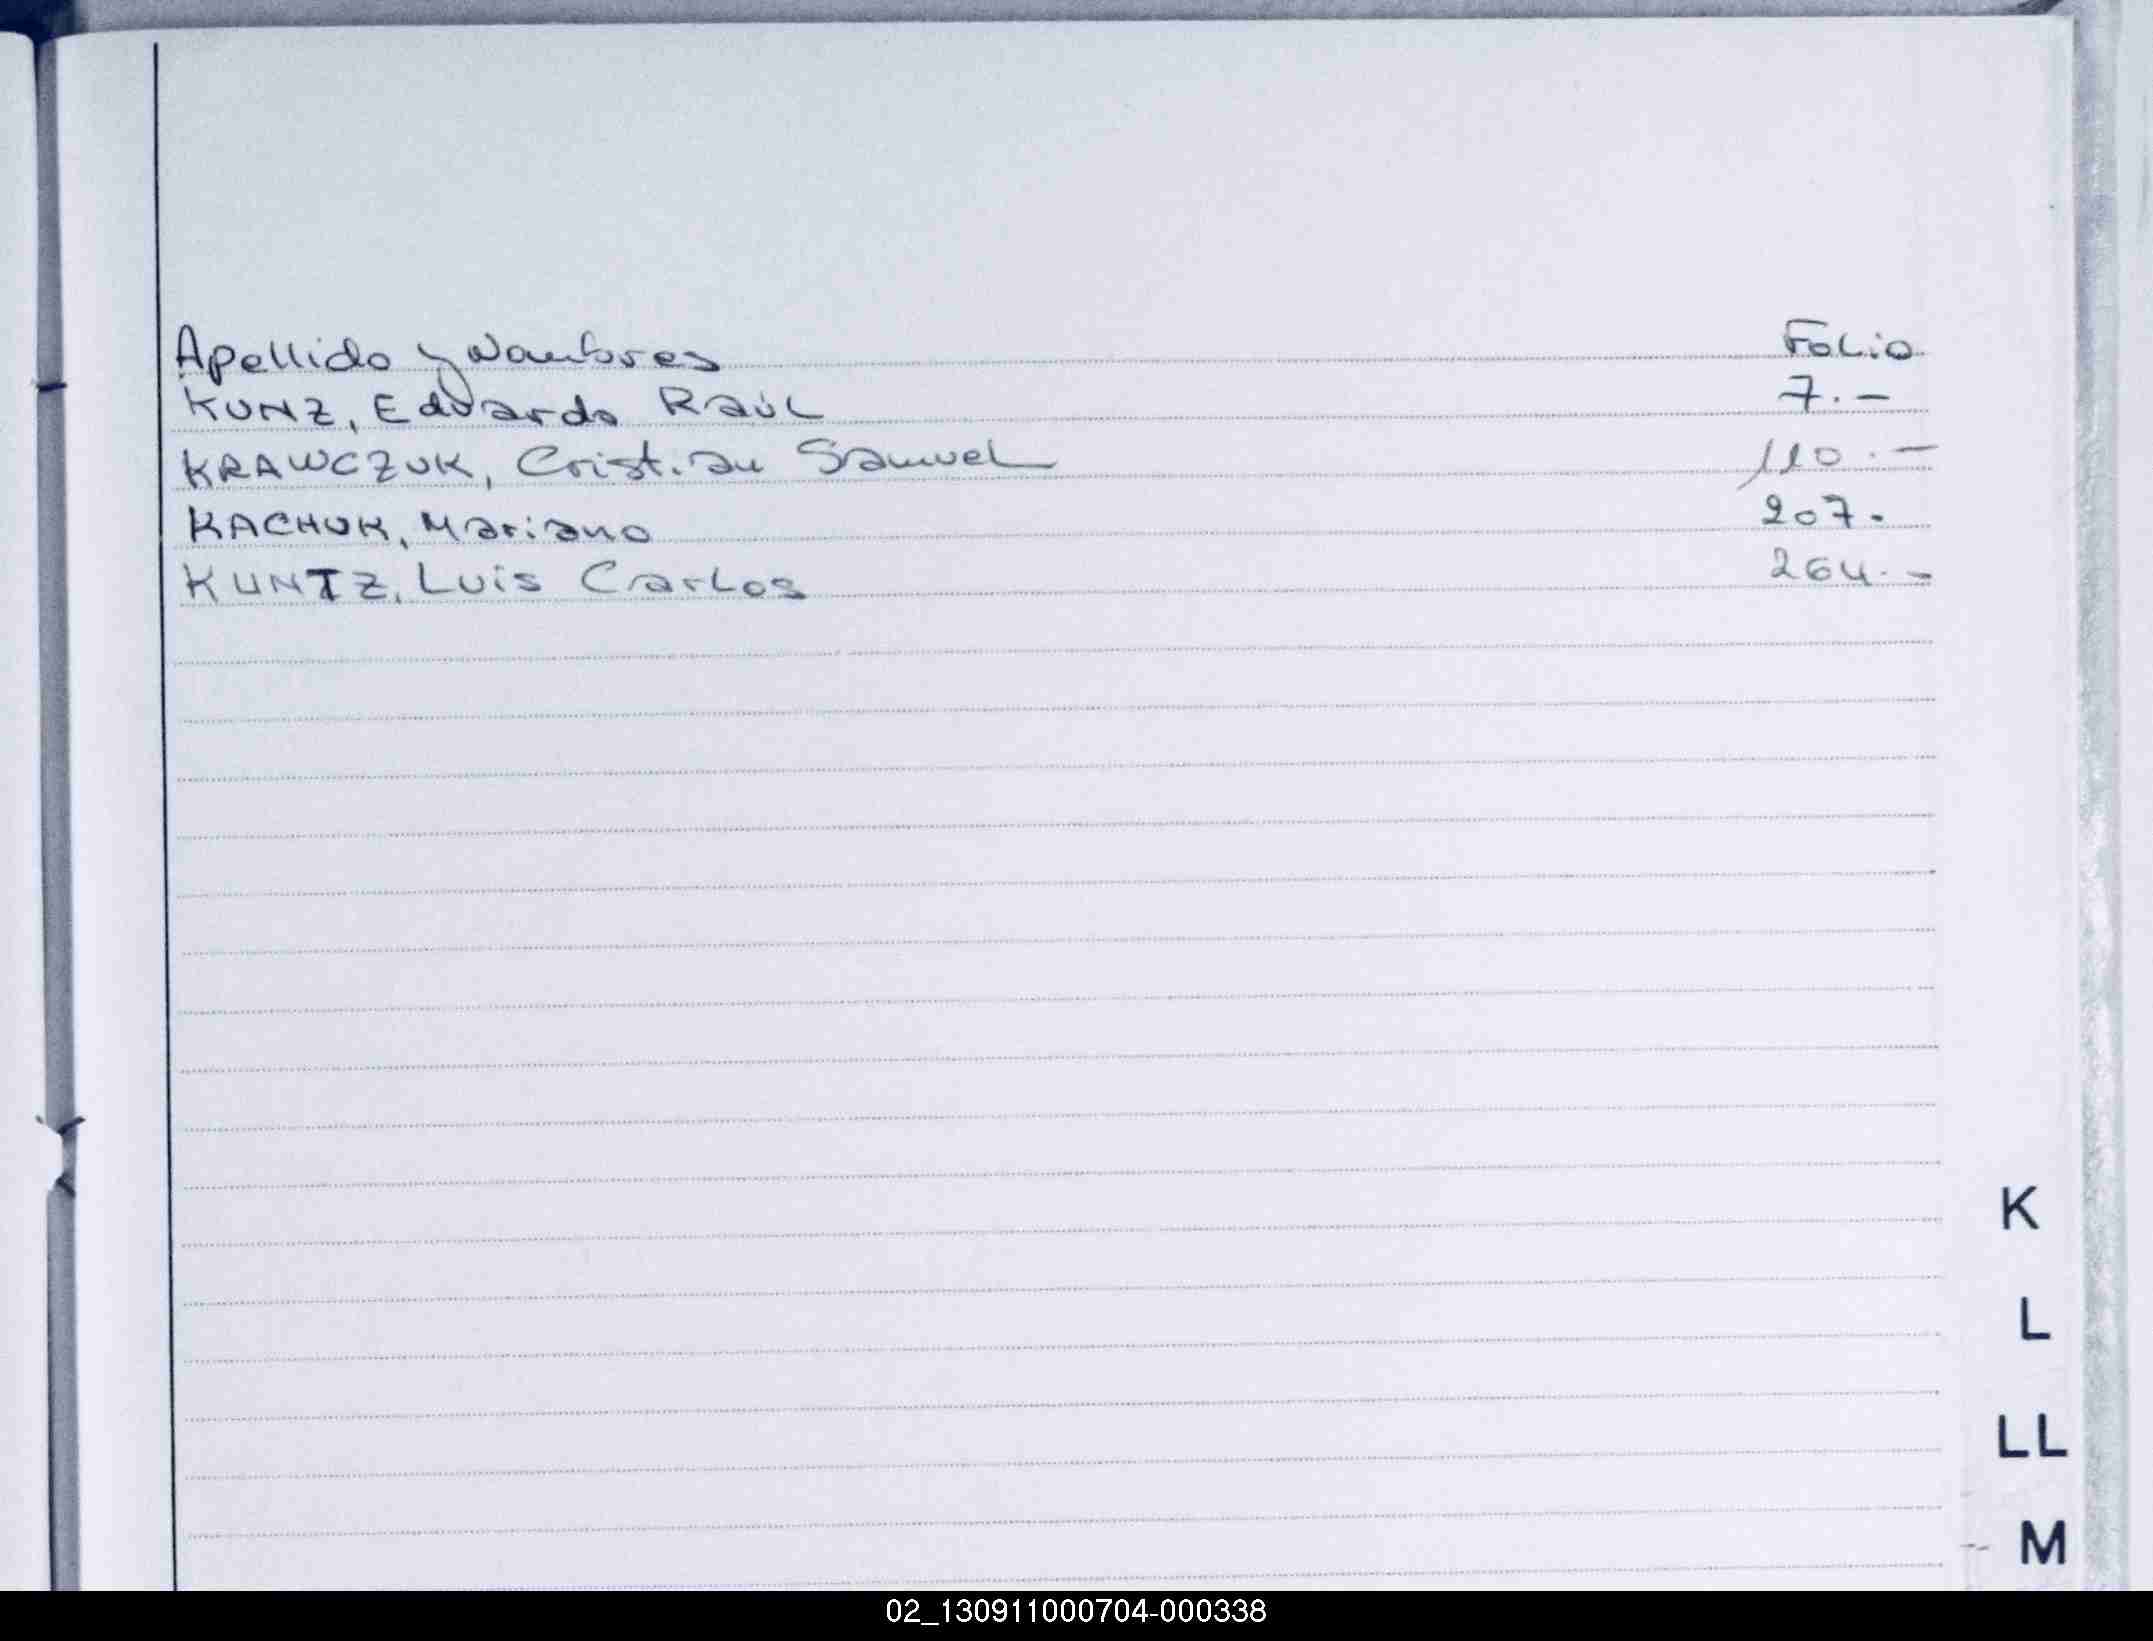 Apellido y Nombres Folio
KUNZ, Eduardo Raúl 7.-
KRAWCZUK, Cristian Samuel 110.-
KACHUK, Mariano 207.
KUNTZ, Luis Carlos 264.-
K
L
LL
M
02_130911000704-000338